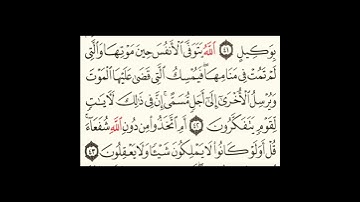 بِوَكِيلٍ ﴿٤١﴾ ٱللَّهُ يَتَوَفَّى ٱلْأَنفُسَ حِينَ مَوْتِهَا وَٱلَّتِى
لَمْ تَمُتْ فِى مَنَامِهَا ۖ فَيُمْسِكُ ٱلَّتِى قَضَىٰ عَلَيْهَا ٱلْمَوْتَ
وَيُرْسِلُ ٱلْأُخْرَىٰٓ إِلَىٰٓ أَجَلٍ مُّسَمًّى ۚ إِنَّ فِى ذَٰلِكَ لَـَٔايَٰتٍ
لِّقَوْمٍ يَتَفَكَّرُونَ ﴿٤٢﴾ أَمِ ٱتَّخَذُوا۟ مِن دُونِ ٱللَّهِ شُفَعَآءَ ۚ
قُلْ أَوَلَوْ كَانُوا۟ لَا يَمْلِكُونَ شَيْـًٔا وَلَا يَعْقِلُونَ ﴿٤٣﴾